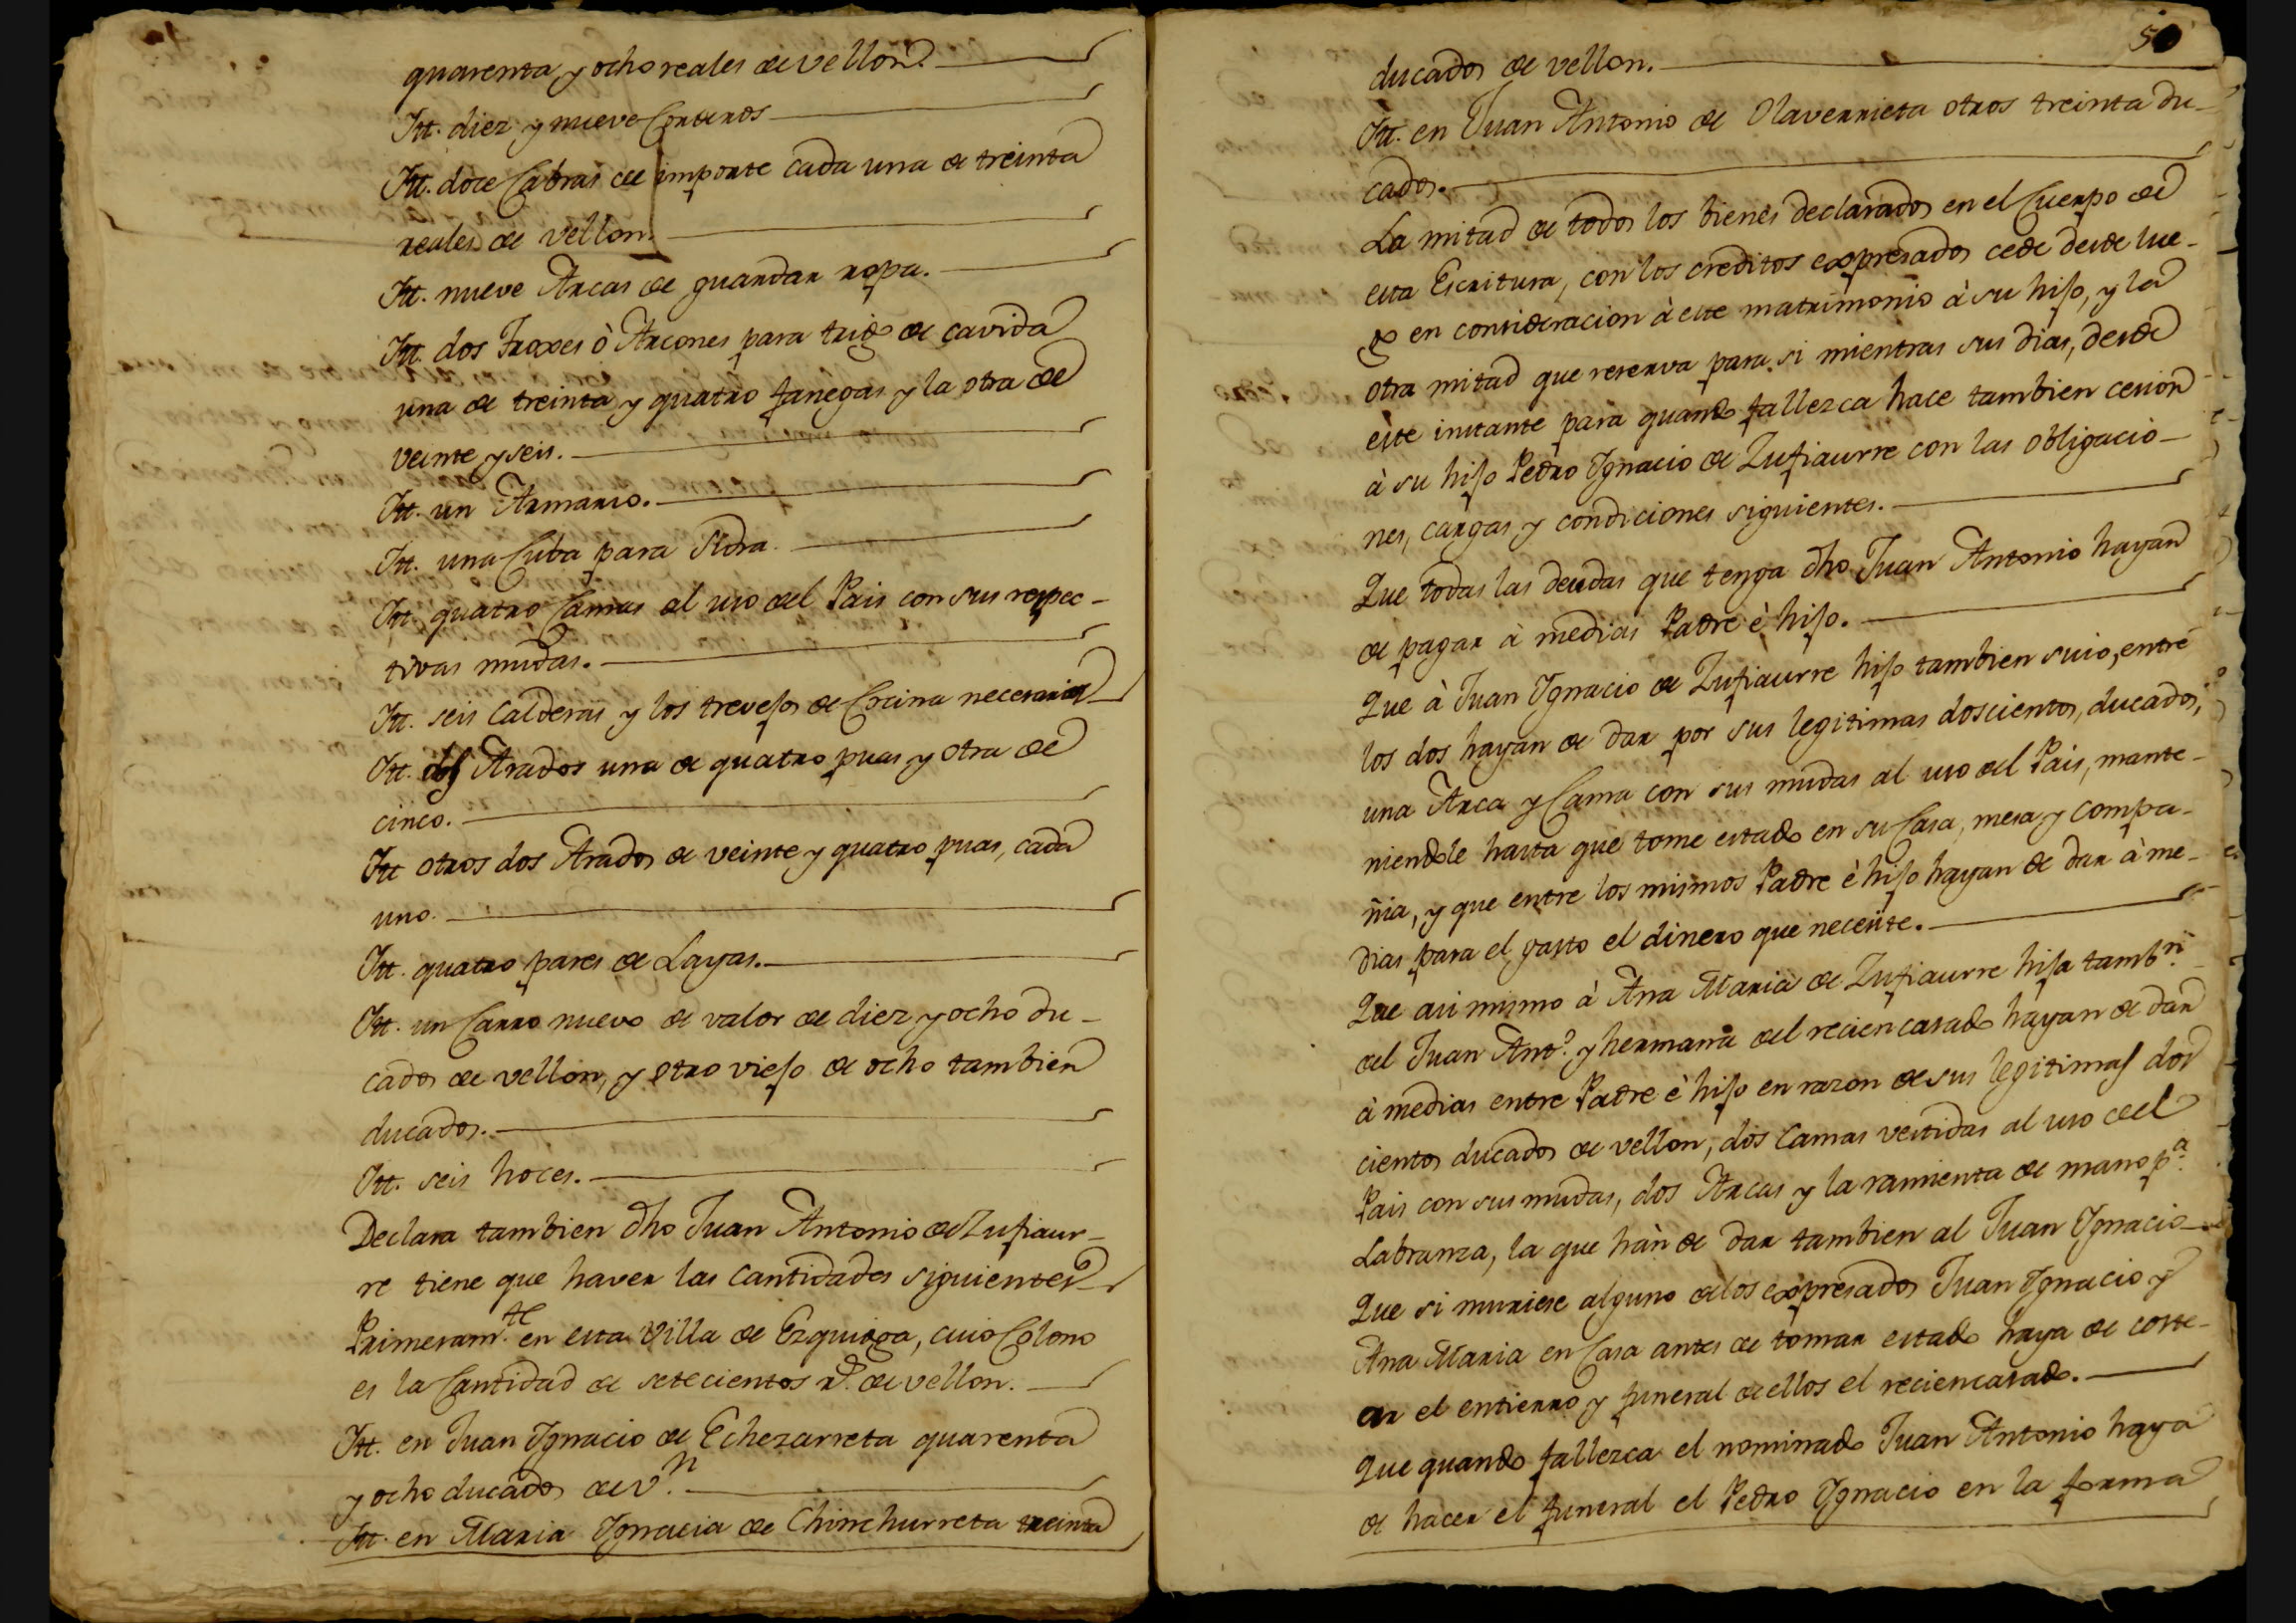 quarenta, y ocho reales de vellon.
Itt. diez y nueve Corderos
Itt. doce Cabras de importe cada una de treinta
reales de vellon.
Itt. nueve Arcas de guardar ropa.
Itt. dos Troxes ò Arcones para trigo de cavida
una de treinta y quatro fanegas y la otra de
veinte y seis.
Itt. un Armario.
Itt. una Cuba para Sidra.
Itt. quatro Camas al uso del Pais con sus respec-
tivas mudas.
Itt. seis Calderas y los trevejos de Cocina necesarios
Itt. dos Arados una de quatro puas y otra de
cinco.
Itt otros dos Arados de veinte y quatro puas, cada
uno.
Itt. quatro pares de Layas.
Itt. un Carro nuevo de valor de diez y ocho du-
cados de vellon, y otro viejo de ocho tambien
ducados.
Itt. seis hoces.
Declara tambien dho Juan Antonio de Zufiaur-
re tiene que haver las Cantidades siguientes
Primeram.te en esta Villa de Ezquioga, cuio Colono
es la Cantidad de setecientos r.s de vellon.
Itt. en Juan Ignacio de Echezarreta quarenta
y ocho ducados de v.n
Itt. en Maria Ignacia de Chinchurreta treinta
50
ducados de vellon.
Itt. en Juan Antonio de Olaverrieta otros treinta du-
cados.
La mitad de todos los bienes declarados en el Cuerpo de
esta Escritura, con los creditos expresados cede desde lue-
go en consideracion à este matrimonio à su hijo, y la
otra mitad que reserva para si mientras sus dias, desde
este instante para quando fallezca hace tambien cesion
à su hijo Pedro Ignacio de Zufiaurre con las obligacio-
nes, cargas y condiciones siguientes.
Que todas las deudas que tenga dho Juan Antonio hayan
de pagar à medias Padre è hijo.
Que à Juan Ignacio de Zufiaurre hijo tambien suio, entre
los dos hayan de dar por sus legitimas doscientos, ducados,
una Arca y Cama con sus mudas al uso del Pais, mante-
niendole hasta que tome estado en su Casa, mesa y compa-
ñia, y que entre los mismos Padre è hijo hayan de dar à me-
dias para el gasto el dinero que necesite.
Que asi mismo à Ana Maria de Zufiaurre hija tamb.n
del Juan Ant.o y hermana del reciencasado hayan de dar
à medias entre Padre è hijo en razon de sus legitimas dos
cientos ducados de vellon, dos Camas vestidas al uso del
Pais con sus mudas, dos Arcas y la ramienta de mano p.a
Labranza, la que hàn de dar tambien al Juan Ignacio
Que si muriese alguno de los expresados Juan Ignacio y
Ana Maria en Casa antes de tomar estado haya de coste-
ar el entierro y funeral de ellos el reciencasado.
Que quando fallezca el nominado Juan Antonio haya
de hacer el funeral el Pedro Ignacio en la forma